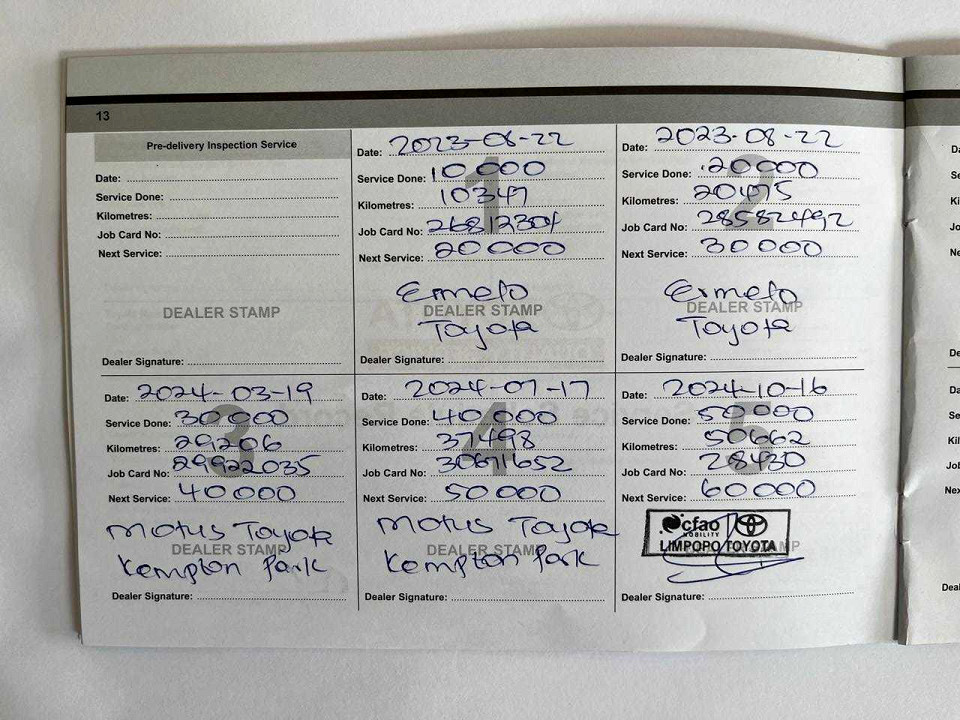 13
Pre-delivery Inspection Service
Date:
Service Done:
Kilometres:
Job Card No:
Next Service:
DEALER STAMP
Dealer Signature:
1
Date: 2023-06-22
Service Done: 10 000
Kilometres: 10347
Job Card No: 26812304
Next Service: 20 000
Ermelo
DEALER STAMP
Toyota
Dealer Signature:
2
Date: 2023-08-22
Service Done: 20000
Kilometres: 20475
Job Card No: 28582492
Next Service: 30 000
Ermelo
DEALER STAMP
Toyota
Dealer Signature:
3
Date: 2024-03-19
Service Done: 30000
Kilometres: 29206
Job Card No: 29922035
Next Service: 40 000
Motus Toyota
DEALER STAMP
Kempton Park
Dealer Signature:
4
Date: 2024-07-17
Service Done: 40 000
Kilometres: 37498
Job Card No: 30671652
Next Service: 50 000
Motus Toyota
DEALER STAMP
Kempton Park
Dealer Signature:
5
Date: 2024-10-16
Service Done: 50000
Kilometres: 50662
Job Card No: 28430
Next Service: 60000
cfao
MOBILITY
LIMPOPO TOYOTA
Dealer Signature: